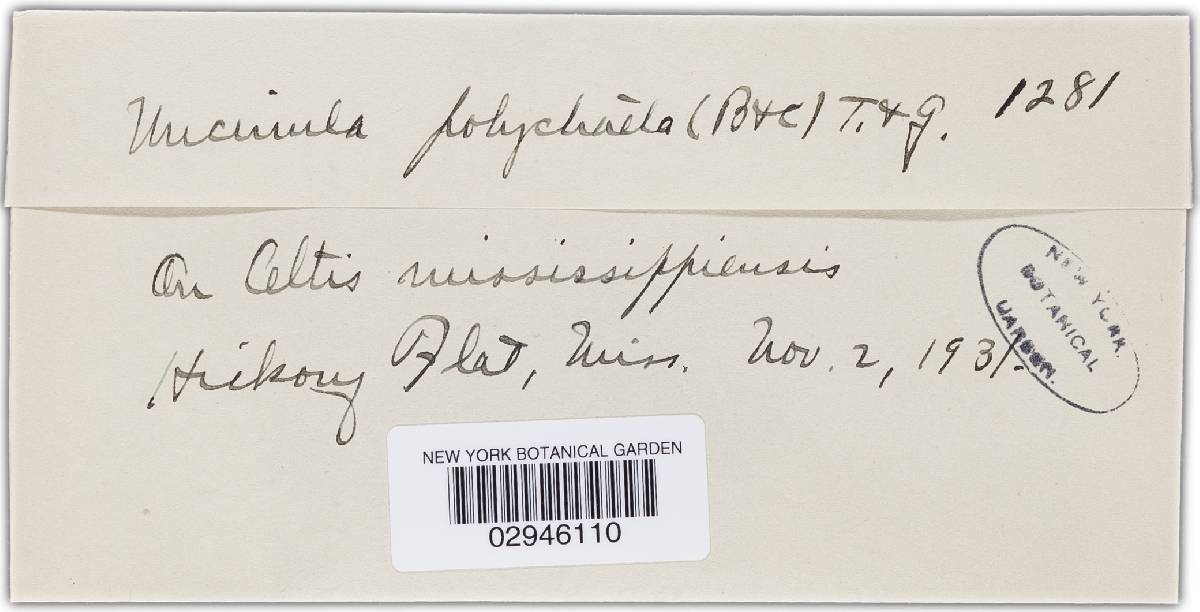 Uncinula polychaeta (B&C) T. & G. 1281
On Celtis mississippiensis
Hickory Flat, Miss. Nov. 2, 1931.
NEW YORK
BOTANICAL
GARDEN.
NEW YORK BOTANICAL GARDEN
02946110